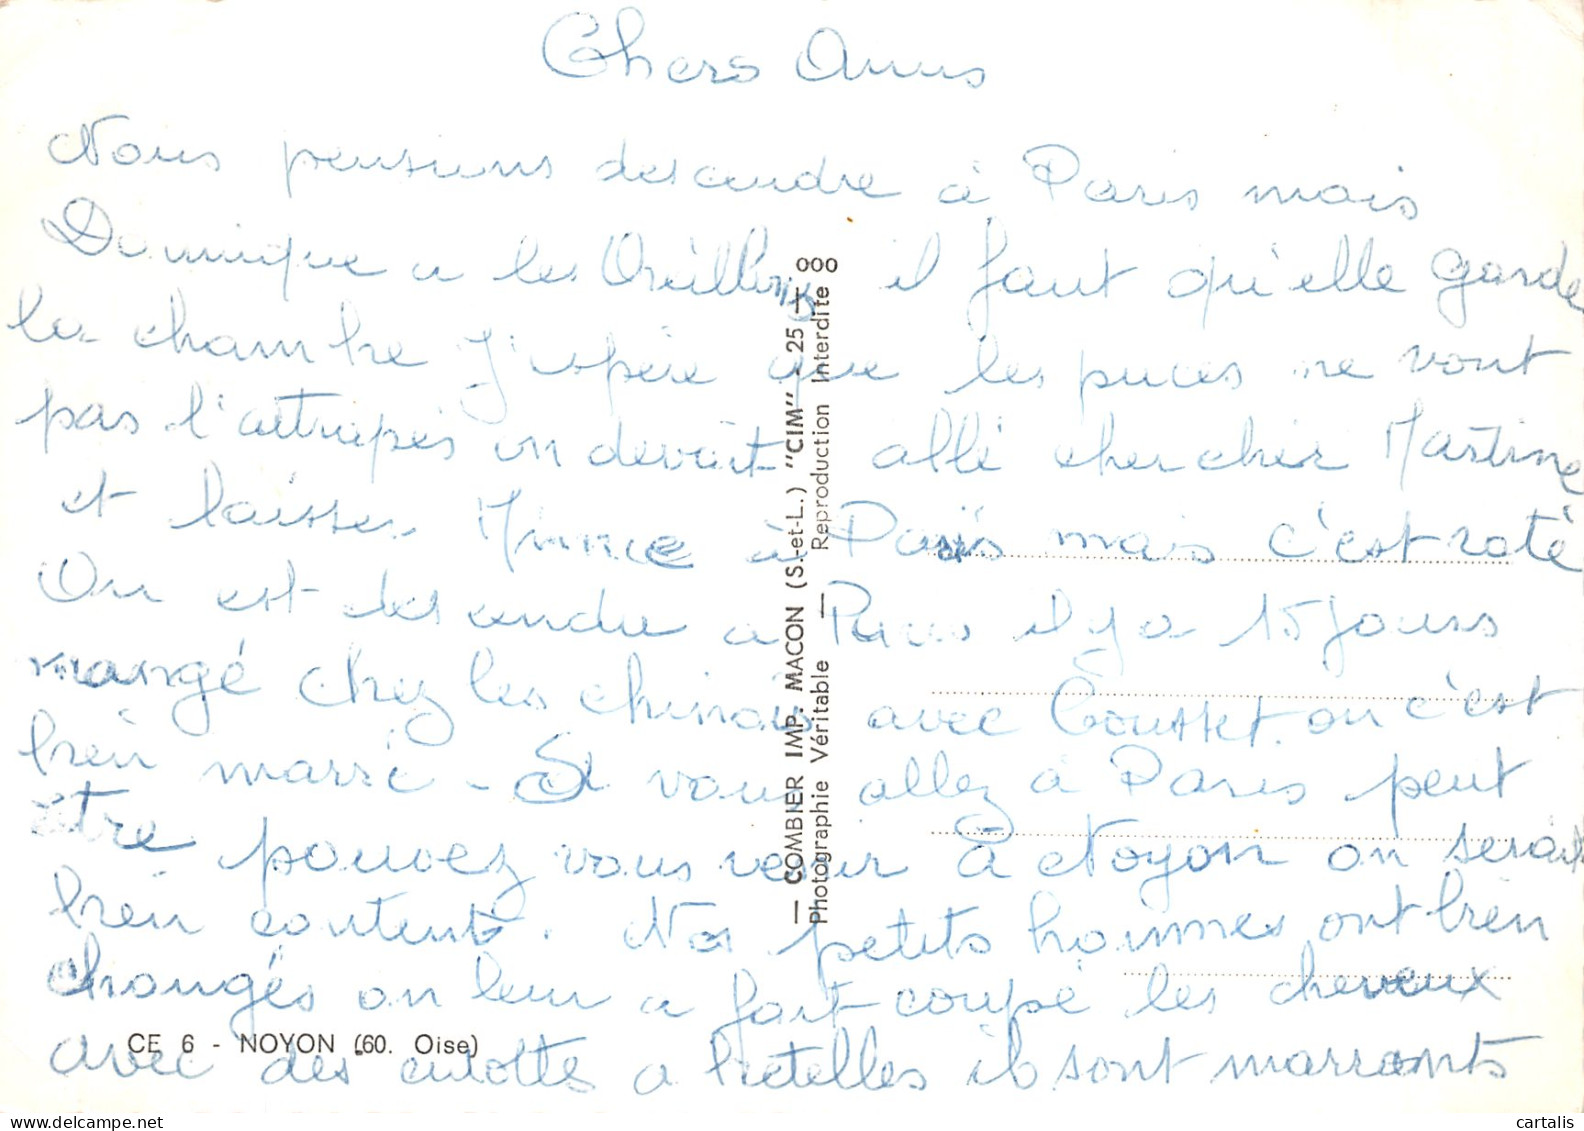 Chers Amis
Nous pensions descendre à Paris mais
Dominique a les Oreillons il faut qu'elle garde
la chambre J'espère que les puces ne vont
pas l'attrapés on devait allé chercher Martine
et laisser à Paris mais c'est raté
On est descendu a Paris il y a 15 jours
mangé chez les chinois avec Cousset on c'est
bien marré - Si vous allez à Paris peut
être pouvez vous venir à Noyon on serait
bien contents. Nos petits hommes ont bien
changés on leur a fait coupé les cheveux
avec des culottes a bretelles ils sont marrants
CE 6 - NOYON (60. Oise)
— COMBIER IMP. MACON (S.-et-L.) "CIM" - 25 — 000
Photographie Véritable — Reproduction Interdite
delcampe.net
cartalis